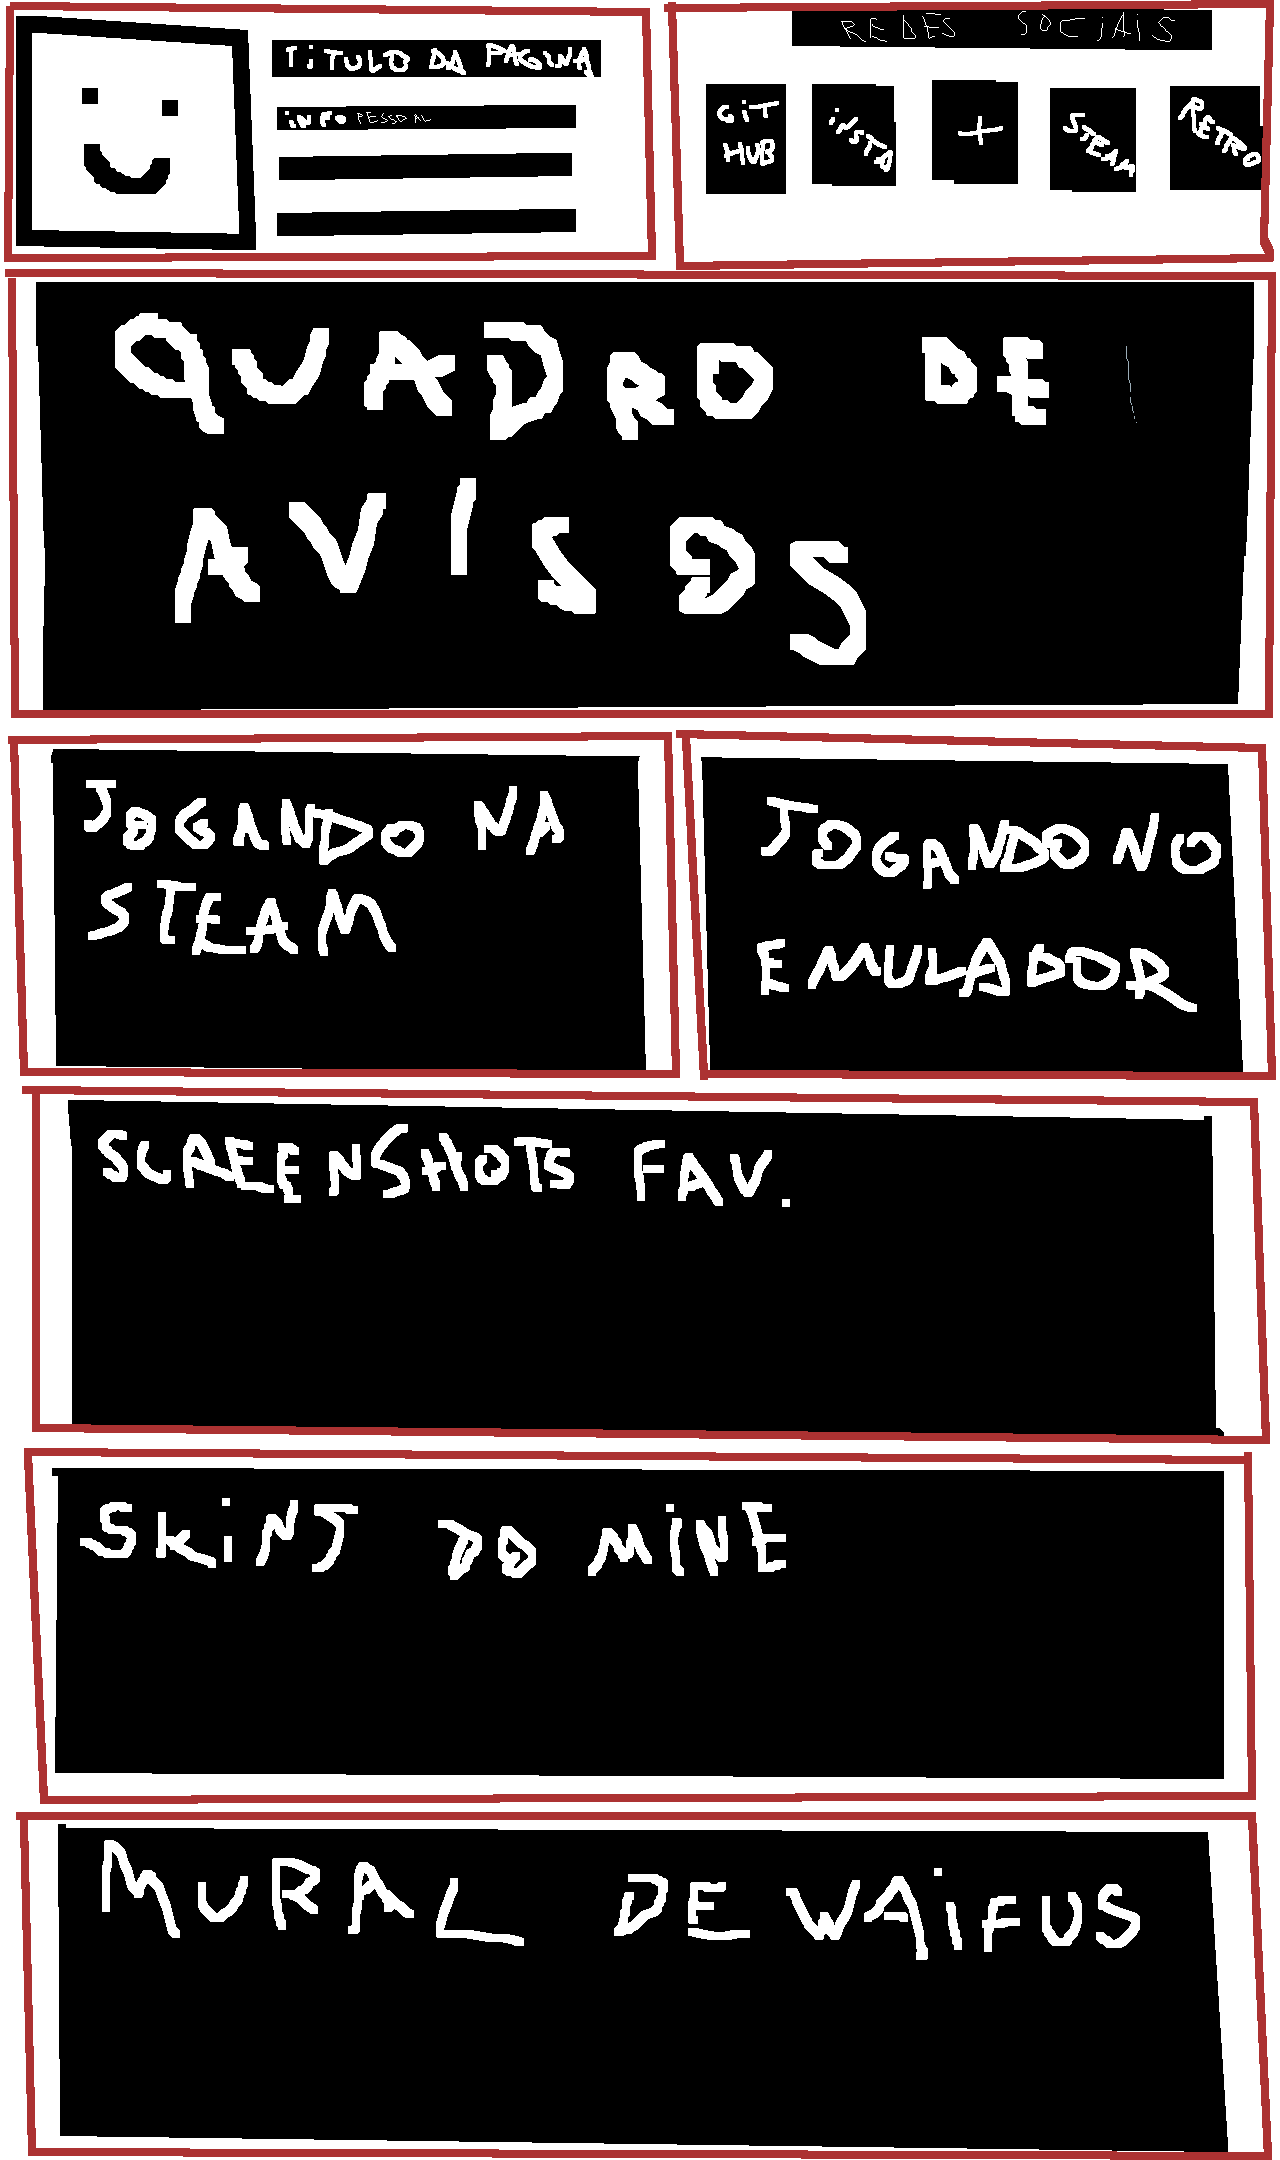 TiTULO DA PAGiNA
iNFO PESSOAL
REDES SOCiAiS
GiT
HUB
iNSTA
+
STEAM
RETRO
QUADRO DE
AVISOS
JOGANDO NA
STEAM
JOGANDO NO
EMULADOR
SCREENSHOTS FAV.
SKiNS DO MiNE
MURAL DE WAiFUS